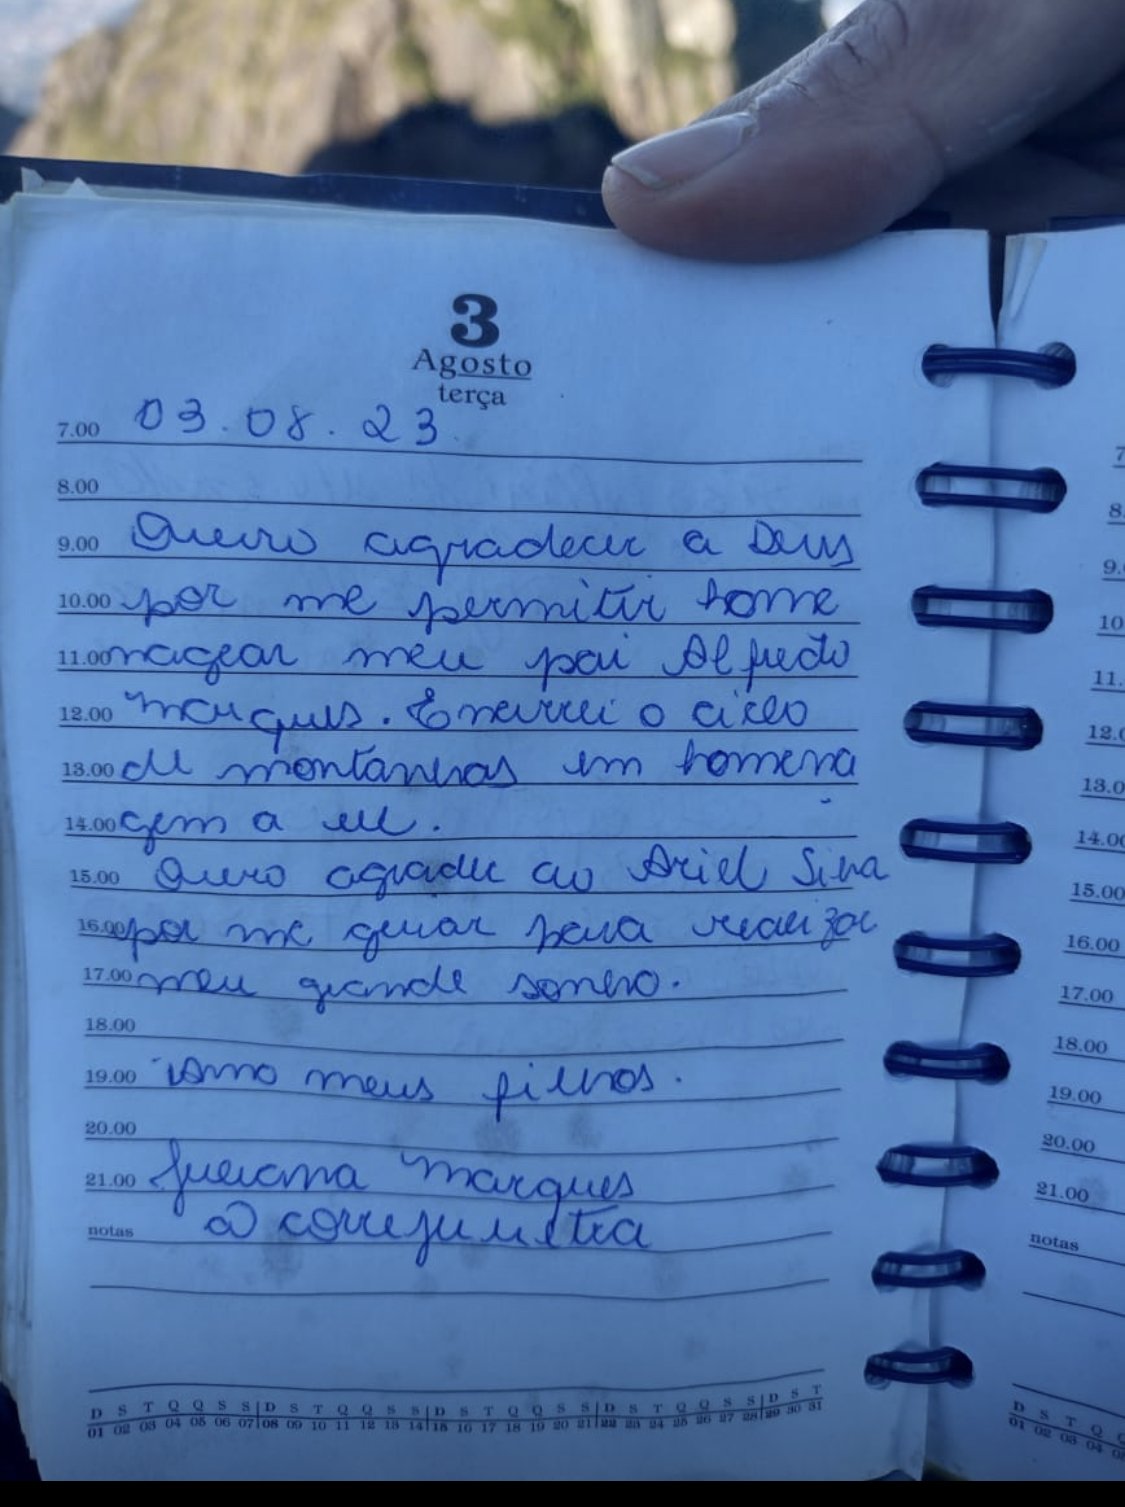 3
Agosto
terça
7.00 03.08.23
8.00
9.00 Quero agradecer a Deus
10.00 por me permitir home
11.00 nagear meu pai Alfredo
12.00 Marques. Encerrei o ciclo
13.00 de montanhas em homena
14.00 gem a ele.
15.00 Quero agradecer ao Ariel Silva
16.00 por me guiar para realizar
17.00 meu grande sonho.
18.00
19.00 Amo meus filhos.
20.00
21.00 Juliana Marques
notas @correjuletra
D S T Q Q S S D S T Q Q S S D S T Q Q S S D S T Q Q S S D S T
01 02 03 04 05 06 07 08 09 10 11 12 13 14 15 16 17 18 19 20 21 22 23 24 25 26 27 28 29 30 31
7
8.
9.
10
11.
12.0
13.0
14.00
15.00
16.00
17.00
18.00
19.00
20.00
21.00
notas
D S T Q
01 02 03 04